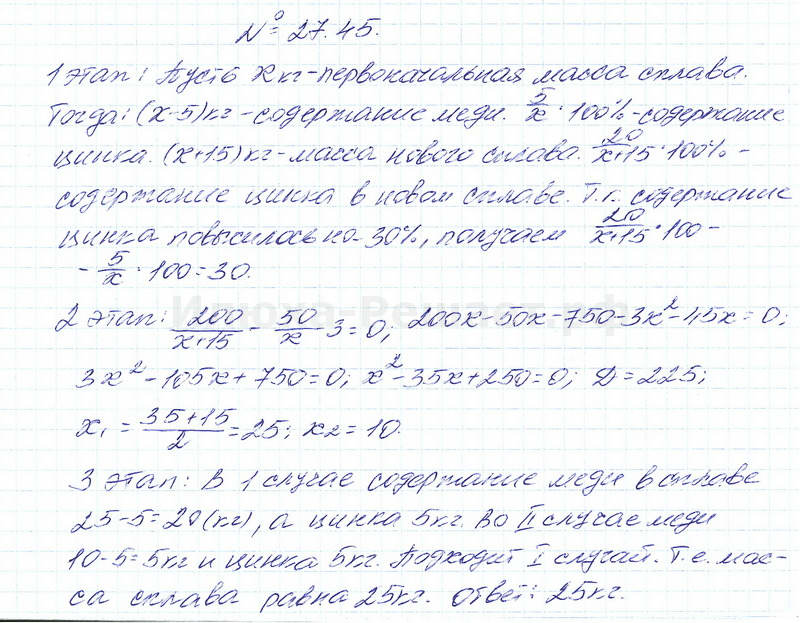 № 27.45.
1 этап: Пусть x кг - первоначальная масса сплава.
Тогда: (x-5)кг - содержание меди. 5/x · 100% - содержание
цинка. (x+15)кг - масса нового сплава. 20/(x+15) · 100% -
содержание цинка в новом сплаве. Т.к. содержание
цинка повысилось на 30%, получаем 20/(x+15) · 100 -
- 5/x · 100 = 30.
Илюха-Решает.рф
2 этап: 200/(x+15) - 50/x - 3 = 0; 200x - 50x - 750 - 3x² - 45x = 0;
3x² - 105x + 750 = 0; x² - 35x + 250 = 0; D = 225;
x₁ = (35+15)/2 = 25; x₂ = 10.
3 этап: В 1 случае содержание меди в сплаве
25-5=20(кг), а цинка 5кг. Во II случае меди
10-5=5кг и цинка 5кг. Подходит I случай. Т.е. мас-
са сплава равна 25кг. Ответ: 25кг.